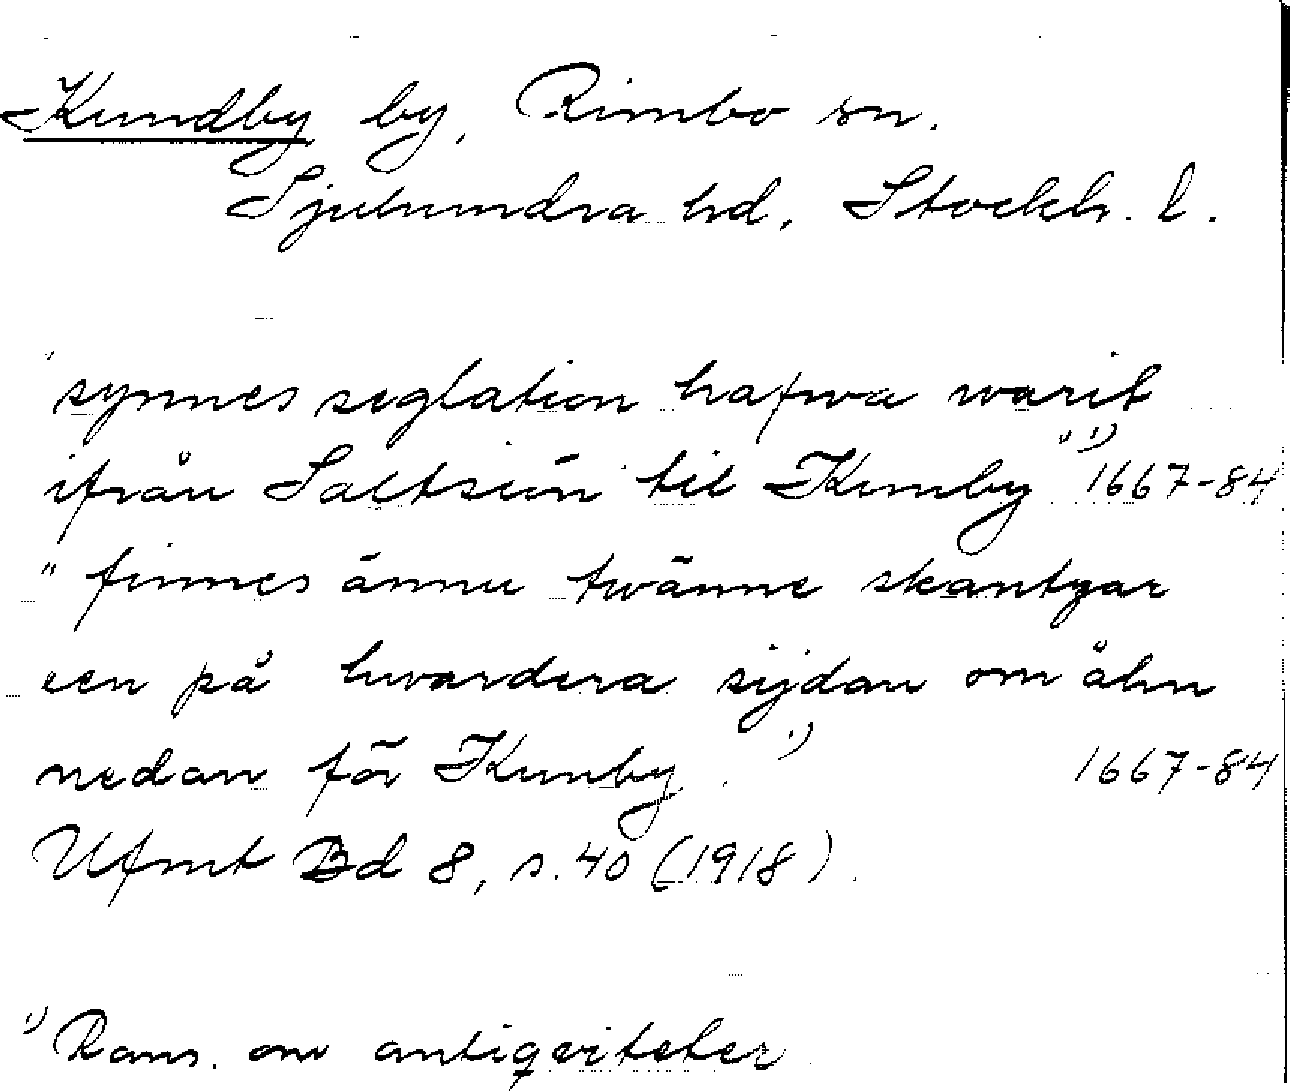 Kundby by, Rimbo sn.
Sjuhundra hd, Stockh. l.
"synnes seglation hafwa warit
ifrån Saltsiön til Kunby" 1) 1667-84
"finnes ännu twänne skantzar
een på hwardera sijdan om åhn
nedan för Kunby. 1) 1667-84
Ufmt Bd 8, s. 40 (1918).
1) Rans. om antiqviteter